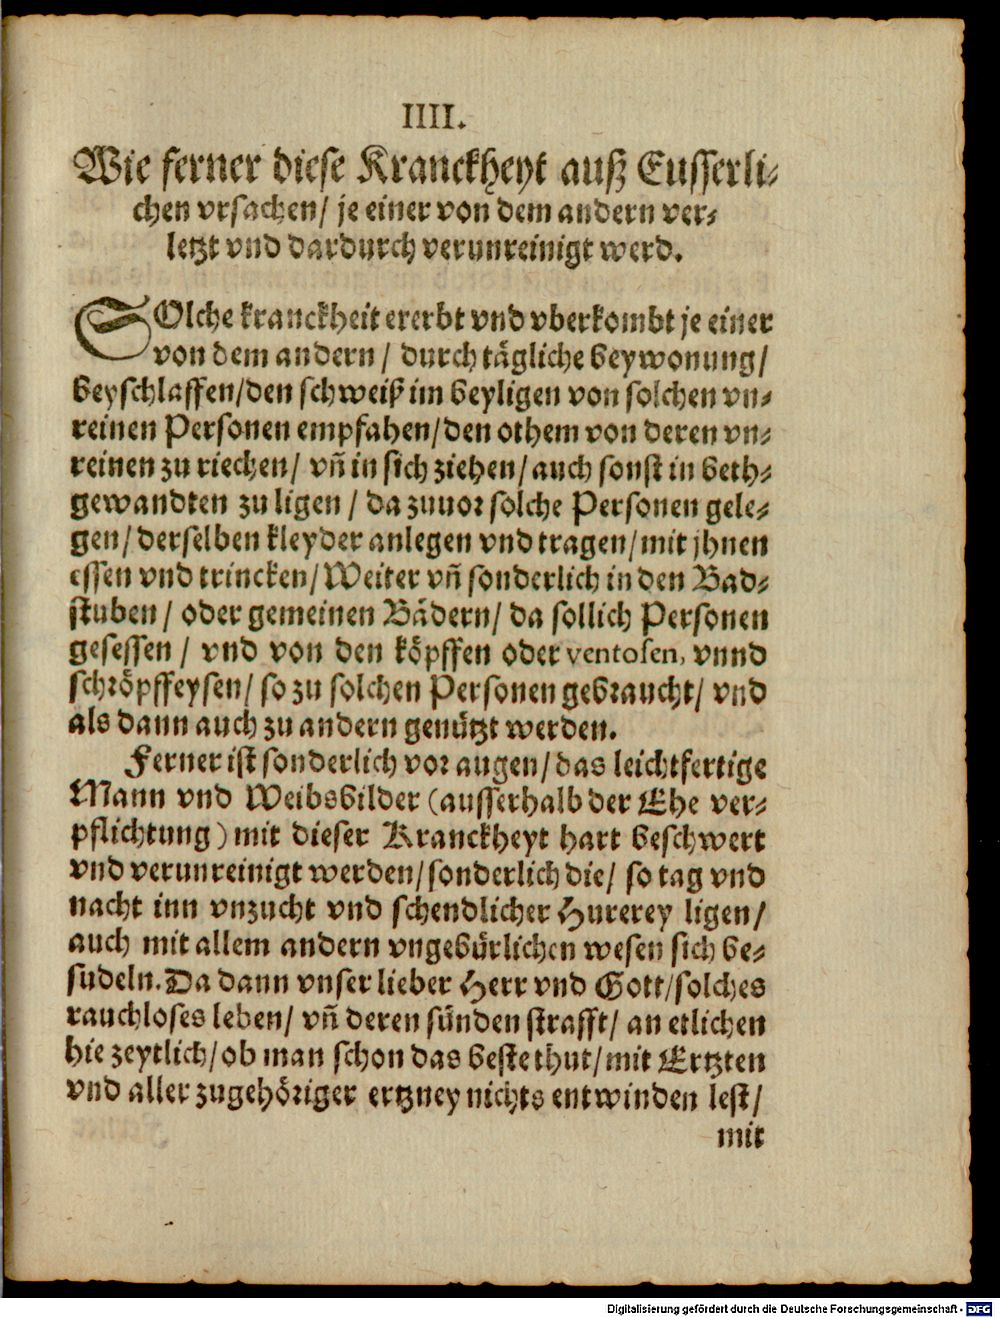 IIII.
Wie ferner diese Kranckheyt auß Eusserli-
chen vrsachen/ je einer von dem andern ver-
letzt vnd dardurch verunreinigt werd.
SOlche kranckheit ererbt vnd vberkombt je einer
von dem andern/ durch tägliche beywonung/
beyschlaffen/den schweiß im beyligen von solchen vn-
reinen Personen empfahen/den othem von deren vn-
reinen zu riechen/ vñ in sich ziehen/auch sonst in beth-
gewandten zu ligen/ da zuuor solche Personen gele-
gen/derselben kleyder anlegen vnd tragen/mit jhnen
essen vnd trincken/Weiter vñ sonderlich in den Bad-
stuben/ oder gemeinen Bädern/ da sollich Personen
gesessen/ vnd von den köpffen oder ventosen, vnnd
schröpffeysen/ so zu solchen Personen gebraucht/ vnd
als dann auch zu andern genützt werden.
Ferner ist sonderlich vor augen/das leichtfertige
Mann vnd Weibsbilder (ausserhalb der Ehe ver-
pflichtung) mit dieser Kranckheyt hart beschwert
vnd verunreinigt werden/sonderlich die/ so tag vnd
nacht inn vnzucht vnd schendlicher Hurerey ligen/
auch mit allem andern vngebürlichen wesen sich be-
sudeln. Da dann vnser lieber Herr vnd Gott/solches
rauchloses leben/ vñ deren sünden strafft/ an etlichen
hie zeytlich/ob man schon das beste thut/mit Ertzten
vnd aller zugehöriger ertzney nichts entwinden lest/
mit
Digitalisierung gefördert durch die Deutsche Forschungsgemeinschaft - DFG